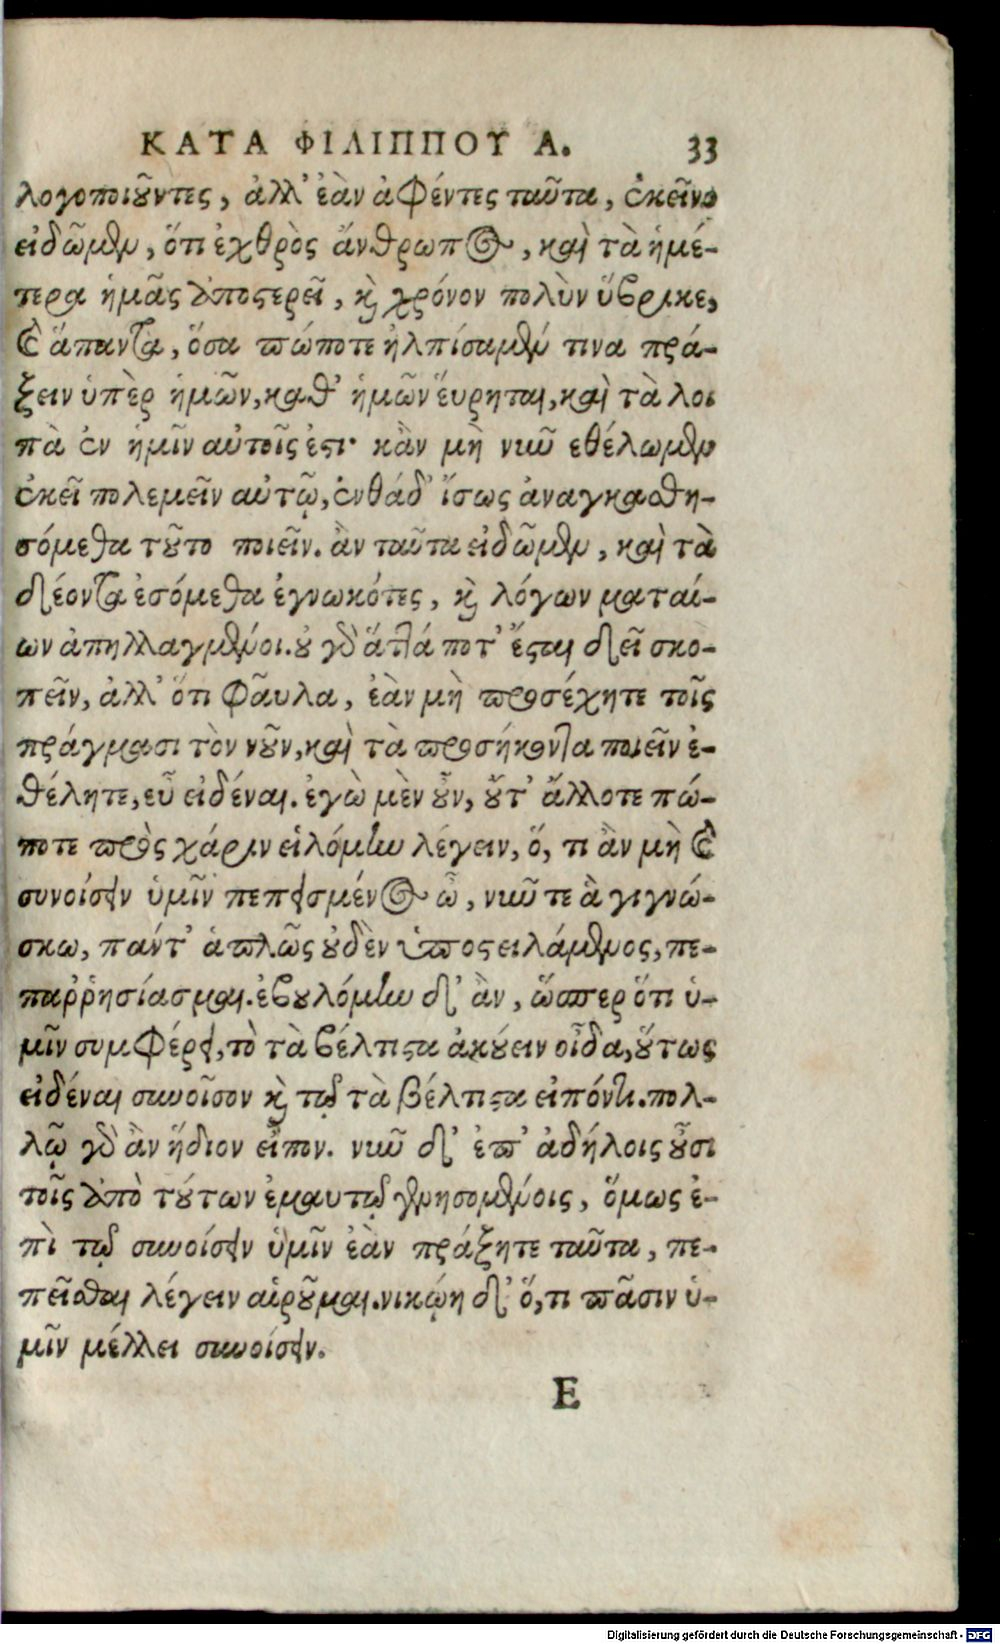 ΚΑΤΑ ΦΙΛΙΠΠΟΥ Α. 33
λογοποιοῦντες, ἀλλ' ἐὰν ἀφέντες ταῦτα, ἐκεῖνο
εἰδῶμεν, ὅτι ἐχθρὸς ἄνθρωπος, καὶ τὰ ἡμέ-
τερα ἡμᾶς ἀποστερεῖ, καὶ χρόνον πολὺν ὕβρικε,
καὶ ἅπαντα, ὅσα πώποτε ἠλπίσαμέν τινα πρά-
ξειν ὑπὲρ ἡμῶν, καθ' ἡμῶν ἕυρηται, καὶ τὰ λοι
πὰ ἐν ἡμῖν αὐτοῖς ἐστι· κἂν μὴ νῦν εθέλωμεν
ἐκεῖ πολεμεῖν αὐτῷ, ἐνθάδ' ἴσως ἀναγκασθη-
σόμεθα τοῦτο ποιεῖν. ἂν ταῦτα εἰδῶμεν, καὶ τὰ
δέοντα ἐσόμεθα ἐγνωκότες, καὶ λόγων ματαί-
ων ἀπηλλαγμένοι. οὐ γὰρ ἅττά ποτ' ἔσται δεῖ σκο-
πεῖν, ἀλλ' ὅτι φαῦλα, ἐὰν μὴ προσέχητε τοῖς
πράγμασι τὸν νοῦν, καὶ τὰ προσήκοντα ποιεῖν ἐ-
θέλητε, εὖ εἰδέναι. ἐγὼ μὲν οὖν, οὔτ' ἄλλοτε πώ-
ποτε πρὸς χάριν εἱλόμην λέγειν, ὅ, τι ἂν μὴ καὶ
συνοίσειν ὑμῖν πεπεισμένος ὦ, νῦν τε ἃ γιγνώ-
σκω, πάντ' ἁπλῶς οὐδὲν ὑποστειλάμενος, πε-
παῤῥησίασμαι. ἐβουλόμην δ' ἂν, ὥσπερ ὅτι ὑ-
μῖν συμφέρει, τὸ τὰ βέλτιστα ἀκούειν οἶδα, οὕτως
εἰδέναι συνοῖσον καὶ τῷ τὰ βέλτιστα εἰπόντι. πολ-
λῷ γὰρ ἂν ἥδιον εἶπον. νῦν δ' ἐπ' ἀδήλοις οὖσι
τοῖς ἀπὸ τούτων ἐμαυτῷ γενησομένοις, ὅμως ἐ-
πὶ τῷ συνοίσειν ὑμῖν ἐὰν πράξητε ταῦτα, πε-
πεῖσθαι λέγειν αἱροῦμαι. νικῴη δ' ὅ, τι πᾶσιν ὑ-
μῖν μέλλει συνοίσειν.
E
Digitalisierung gefördert durch die Deutsche Forschungsgemeinschaft - DFG